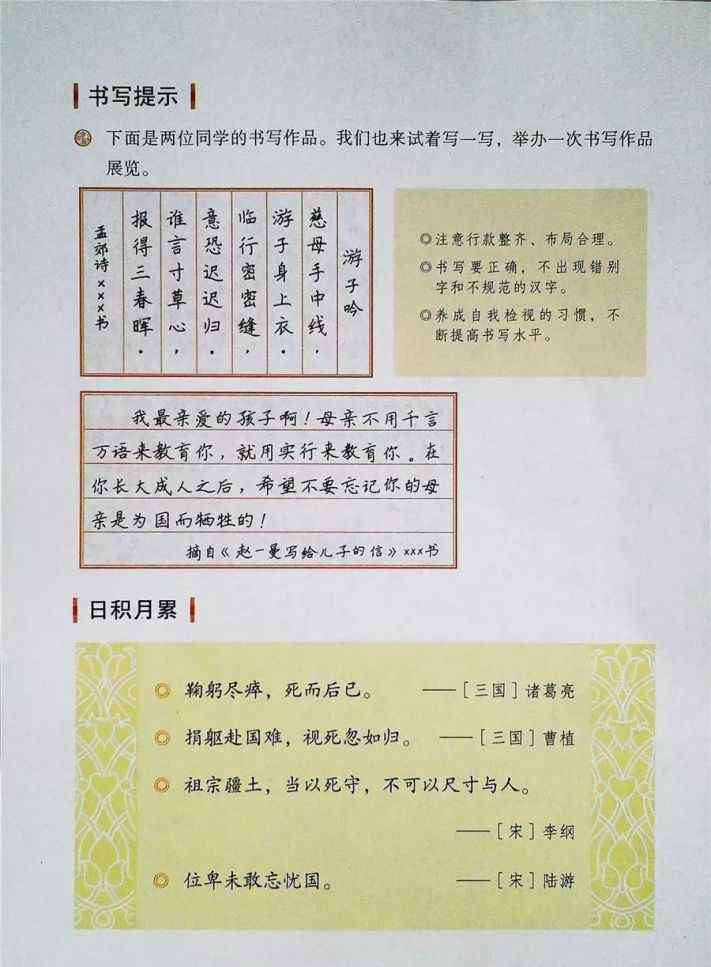 书写提示
下面是两位同学的书写作品。我们也来试着写一写，举办一次书写作品
展览。
游子吟
慈母手中线，
游子身上衣。
临行密密缝，
意恐迟迟归。
谁言寸草心，
报得三春晖。
孟郊诗×××书
◎注意行款整齐、布局合理。
◎书写要正确，不出现错别
字和不规范的汉字。
◎养成自我检视的习惯，不
断提高书写水平。
我最亲爱的孩子啊！母亲不用千言
万语来教育你，就用实行来教育你。在
你长大成人之后，希望不要忘记你的母
亲是为国而牺牲的！
摘自《赵一曼写给儿子的信》×××书
日积月累
◎ 鞠躬尽瘁，死而后已。 ——［三国］诸葛亮
◎ 捐躯赴国难，视死忽如归。 ——［三国］曹植
◎ 祖宗疆土，当以死守，不可以尺寸与人。
——［宋］李纲
◎ 位卑未敢忘忧国。 ——［宋］陆游